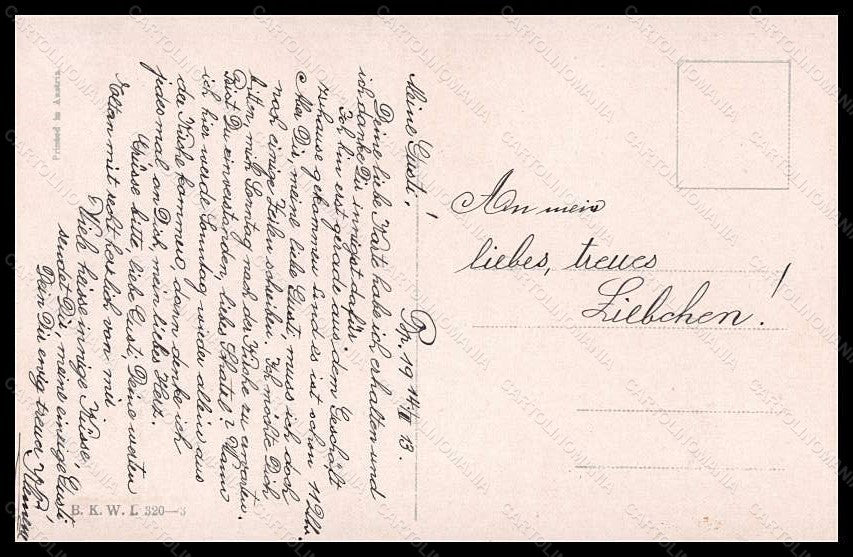 An mein
liebes, treues
Liebchen!
Meine Gusti!
Bp, 19 14/II 13.
Deine liebe Karte habe ich erhalten und
ich danke Dir innigst dafür.
Ich bin erst gerade aus dem Geschäft
zuhause gekommen und es ist schon 11 Uhr.
Aber Dir, meine liebe Gusti, muss ich doch
noch einige Zeilen schreiben. Ich möchte Dich
bitten, mich Sonntag nach der Kirche zu erwarten.
Bist Du einverstanden, liebes Schatzl? Wenn
ich hier werde Sonntag wieder allein aus
der Kirche kommen, dann denke ich
jedesmal an Dich, mein liebes Herz.
Grüsse bitte, liebe Gusti, Deine werten
Eltern mit recht herzlich von mir.
Viele heisse innige Küsse,
sendet Dir, meine einzige Gusti
Dein Dir ewig treuer
Printed in Austria
B. K. W. I. 320—3
CARTOLINOMANIA